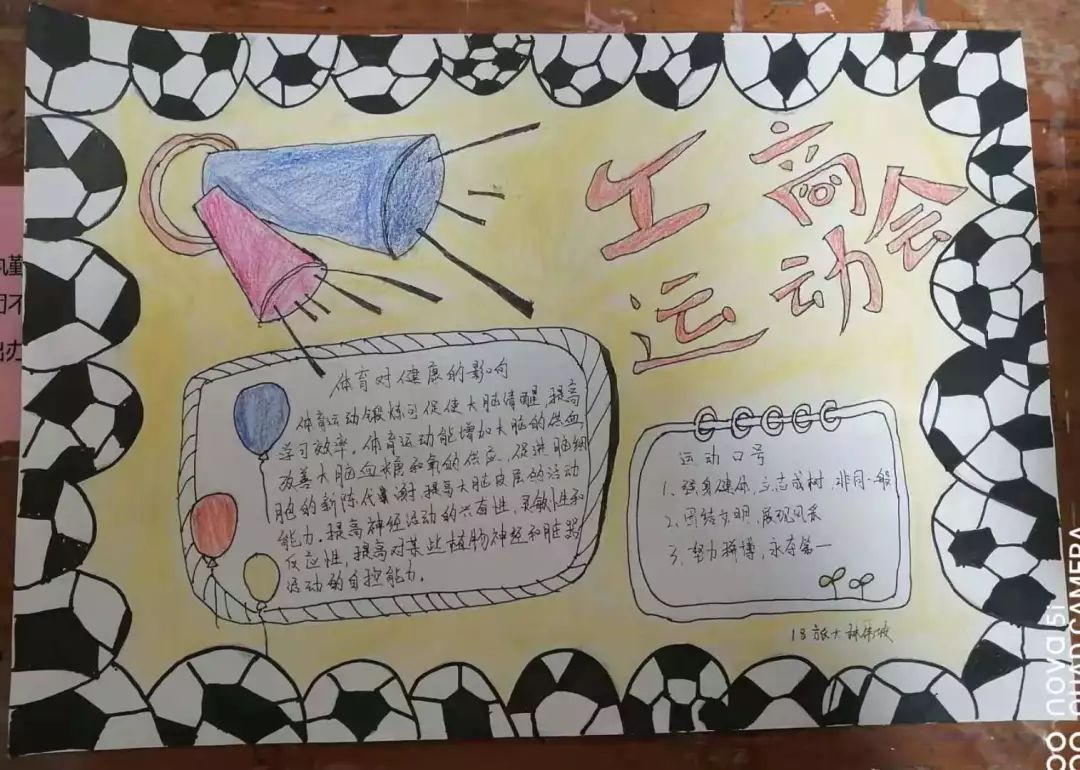 工商
运动会
体育对健康的影响
体育运动锻炼可促使大脑清醒 提高
学习效率。体育运动能增加大脑的供血
改善大脑血糖和氧的供应.促进脑细
胞的新陈代谢.提高大脑皮层的活动
能力.提高神经运动的兴奋性,灵敏性和
反应性,提高对某些植物神经和脏器
运动的自控能力.
运动口号
1、强身健体,立志成树,非同一般
2、团结文明,展现风采
3、努力拼搏,永夺第一
18旅大
执勤
出办
nova 5i
QUAD CAMERA